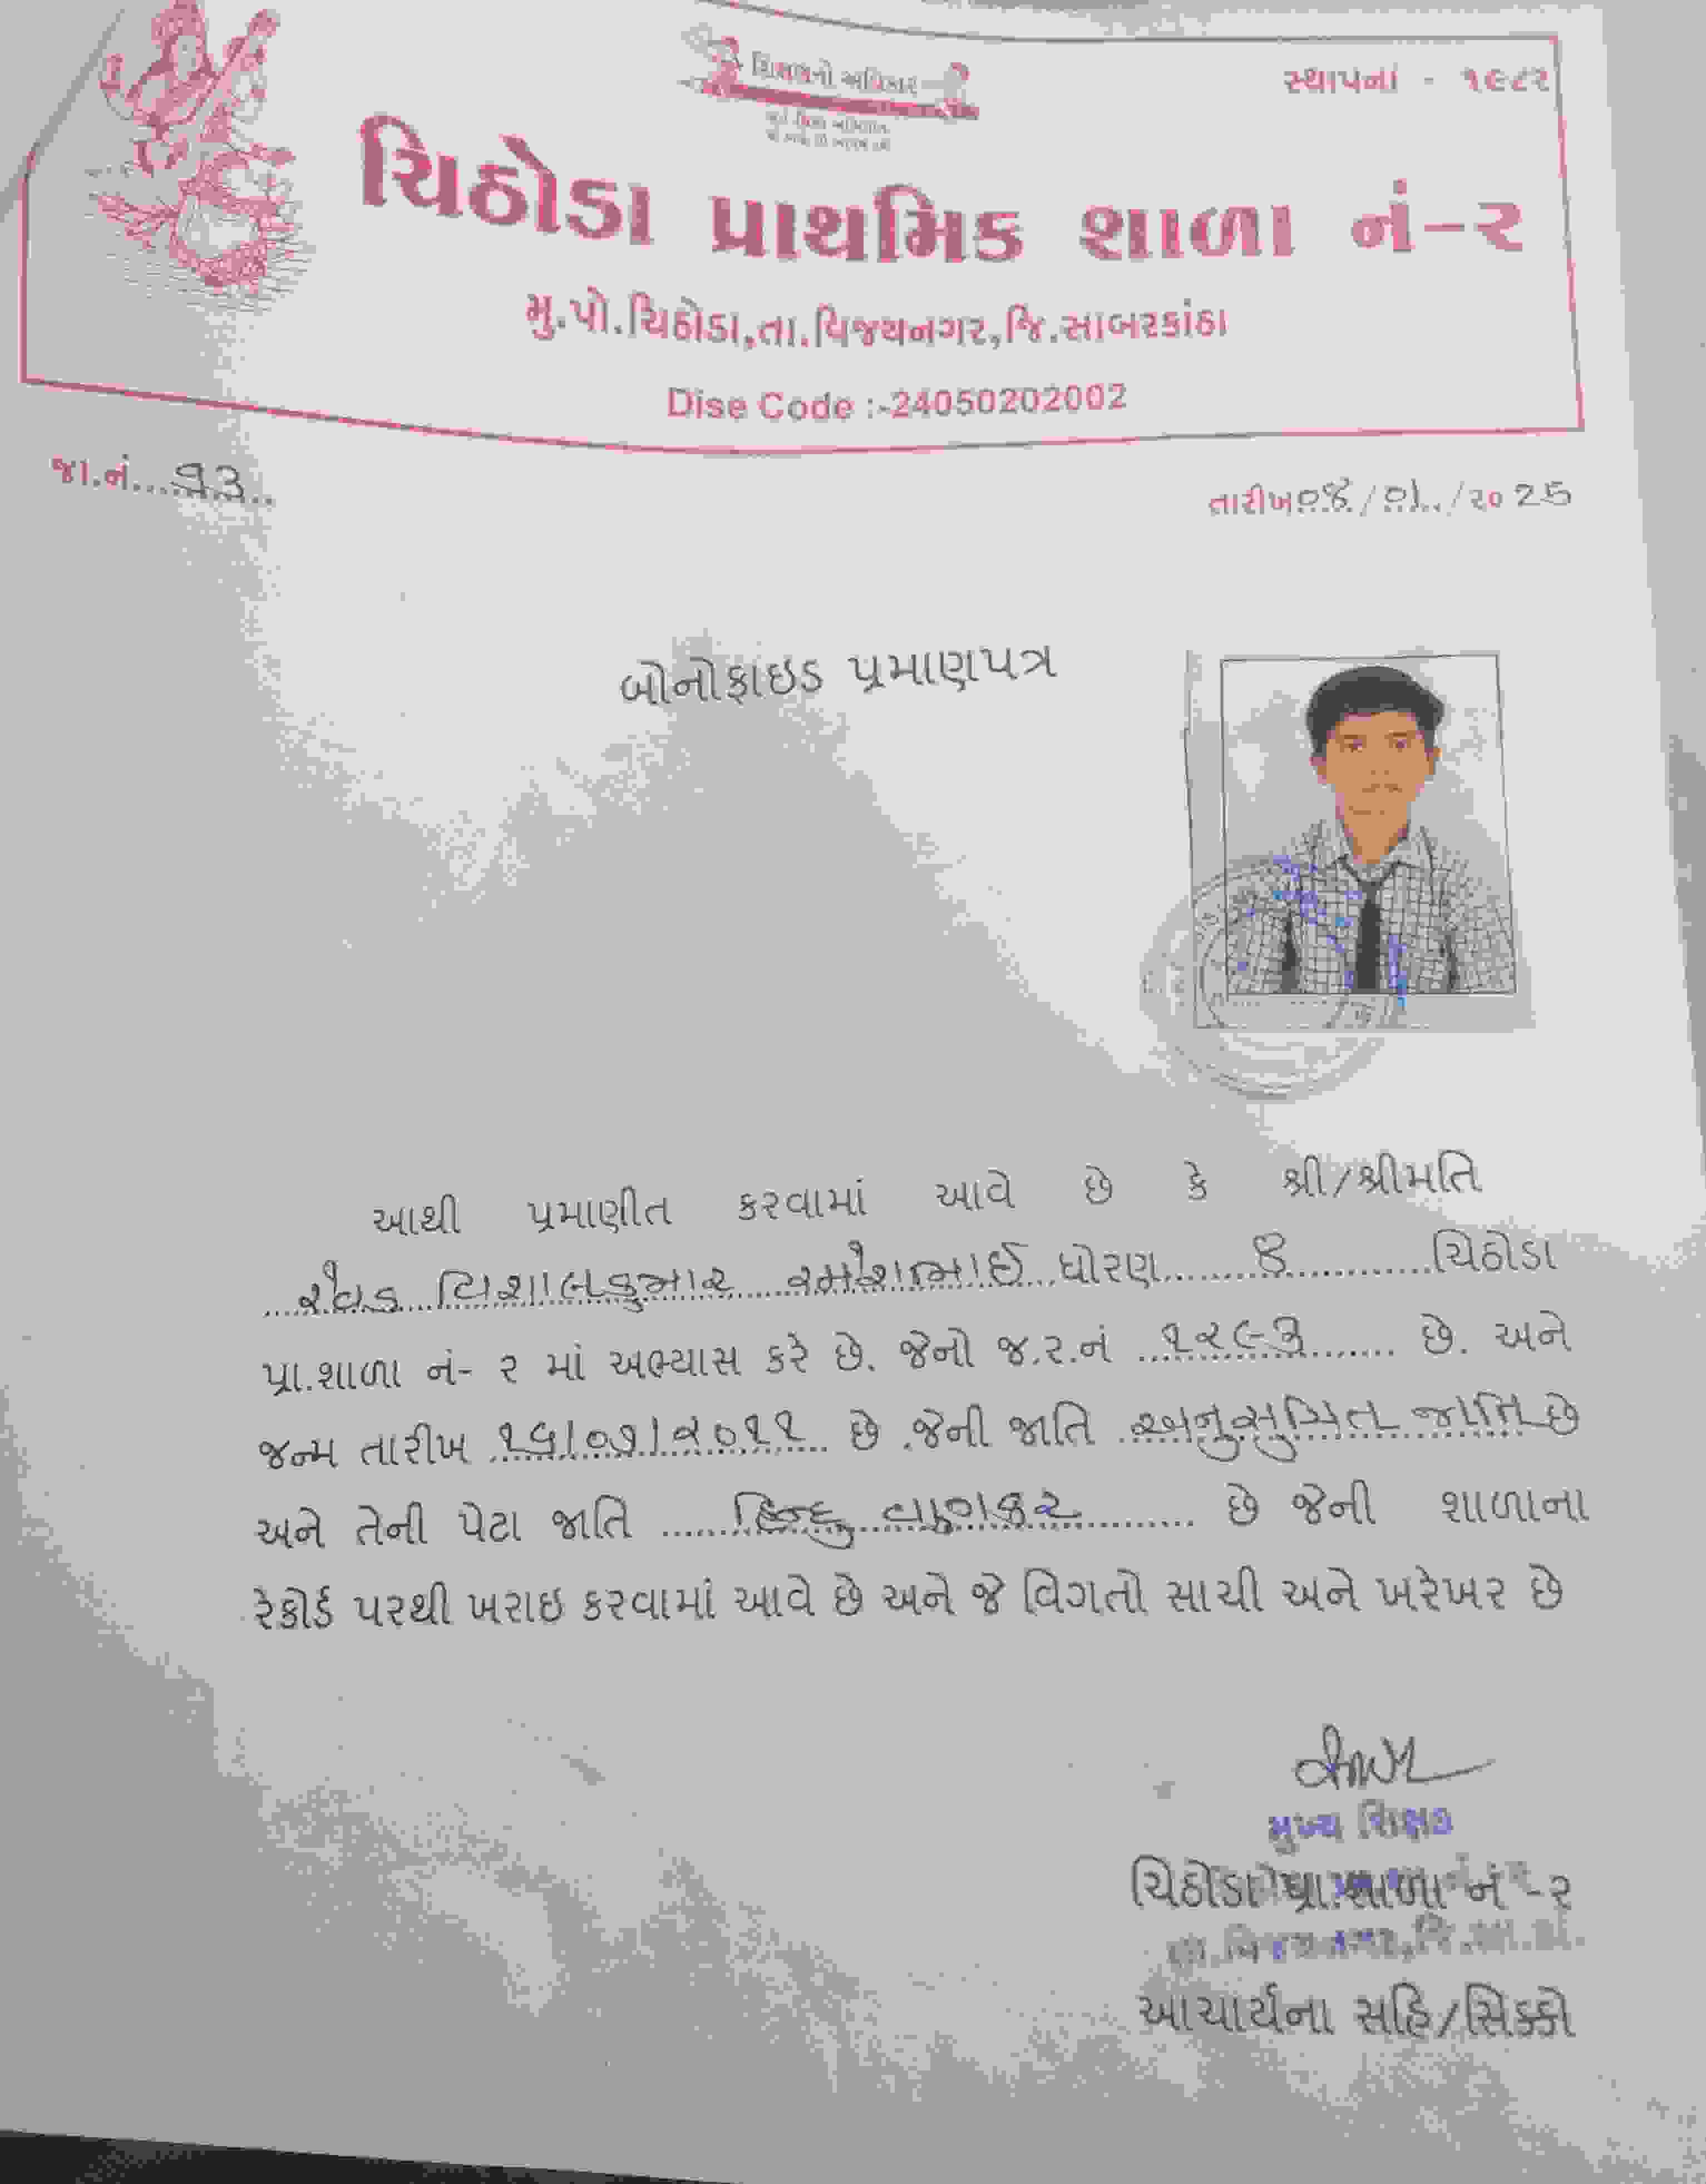 શિક્ષણનો અધિકાર
સ્થાપના - ૧૯૮૨
ચિઠોડા પ્રાથમિક શાળા નં-૨
મુ.પો.ચિઠોડા,તા.વિજયનગર,જિ.સાબરકાંઠા
Dise Code :-24050202002
જા.નં...૧૩..
તારીખ૦૪/01/૨૦25
બોનોફાઇડ પ્રમાણપત્ર
આથી પ્રમાણીત કરવામાં આવે છે કે શ્રી/શ્રીમતિ
વિશાલકુમાર રમેશભાઈ ધોરણ 8 ચિઠોડા
પ્રા.શાળા નં- ૨ માં અભ્યાસ કરે છે. જેનો જ.ર.નં ૧૨૯૩ છે. અને
જન્મ તારીખ ૧૬/૦૭/૨૦૧૧ છે .જેની જાતિ અનુસુચિત જાતિ છે
અને તેની પેટા જાતિ હિન્દુ વણકર છે જેની શાળાના
રેકોર્ડ પરથી ખરાઇ કરવામાં આવે છે અને જે વિગતો સાચી અને ખરેખર છે
મુખ્ય શિક્ષક
ચિઠોડા પ્રા.શાળા નં -૨
આચાર્યના સહિ/સિક્કો